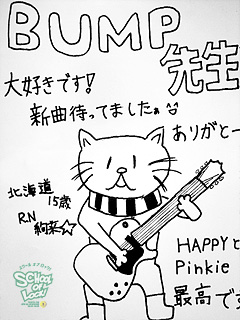 BUMP
先生
大好きです!
新曲待ってましたぁ
ありがとー
北海道
15歳
R.N
絢菜☆
SCHOOL
OF
LOCK!
HAPPYと
Pinkie
最高です